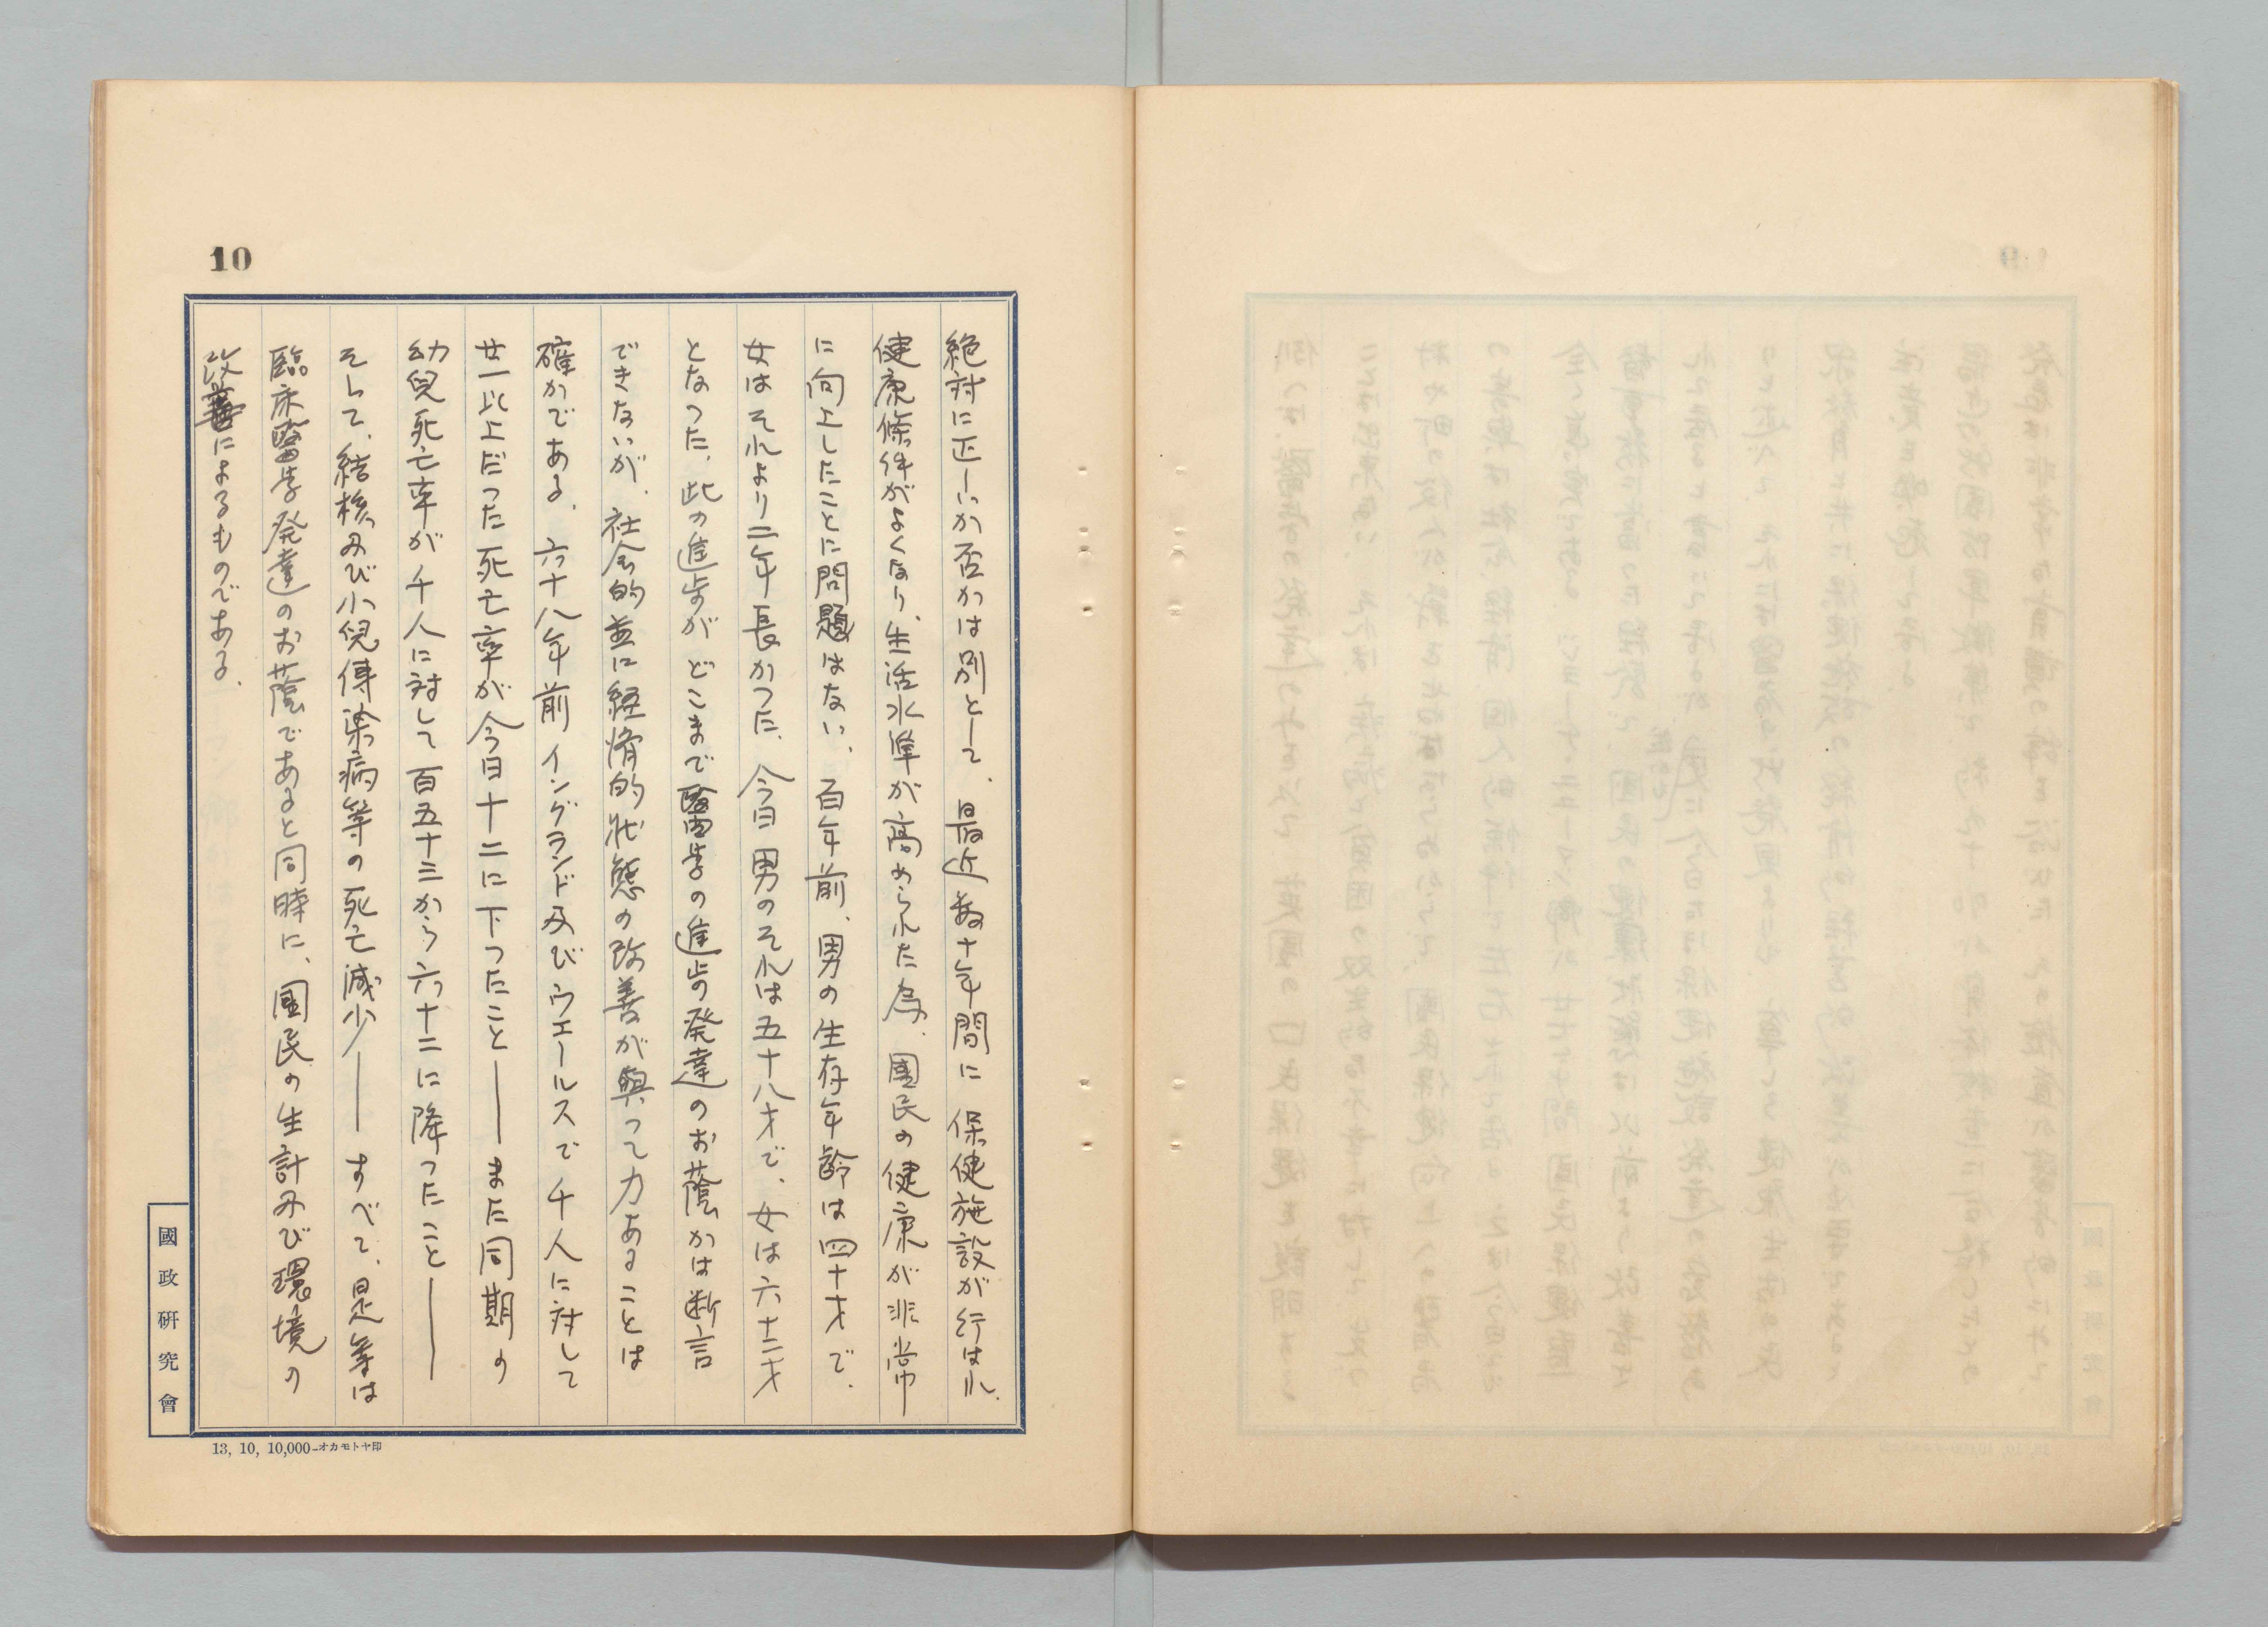 10
絶対に正しいか否かは別として、最近数十年間に保健施設が行はれ、
健康條件がよくなり、生活水準が高められた為、國民の健康が非常
に向上したことに問題はない、百年前、男の生存年齢は四十才で、
女はそれより二年長かつた、今日男のそれは五十八才で、女は六十二才
となつた、此の進歩がどこまで醫学の進歩発達のお蔭かは断言
できないが、社会的並に経済的状態の改善が與つて力あることは
確かである、六十八年前イングランド及びウエールスで千人に対して
廿一以上だつた死亡率が今日十二に下つたこと——また同期の
幼児死亡率が千人に対して百五十三から六十二に降つたこと——
そして、結核及び小児傳染病等の死亡減少——すべて、是等は
臨床醫学発達のお蔭であると同時に、國民の生計及び環境の
改善によるものである、
國政研究會
13, 10, 10,000-オカモトヤ印